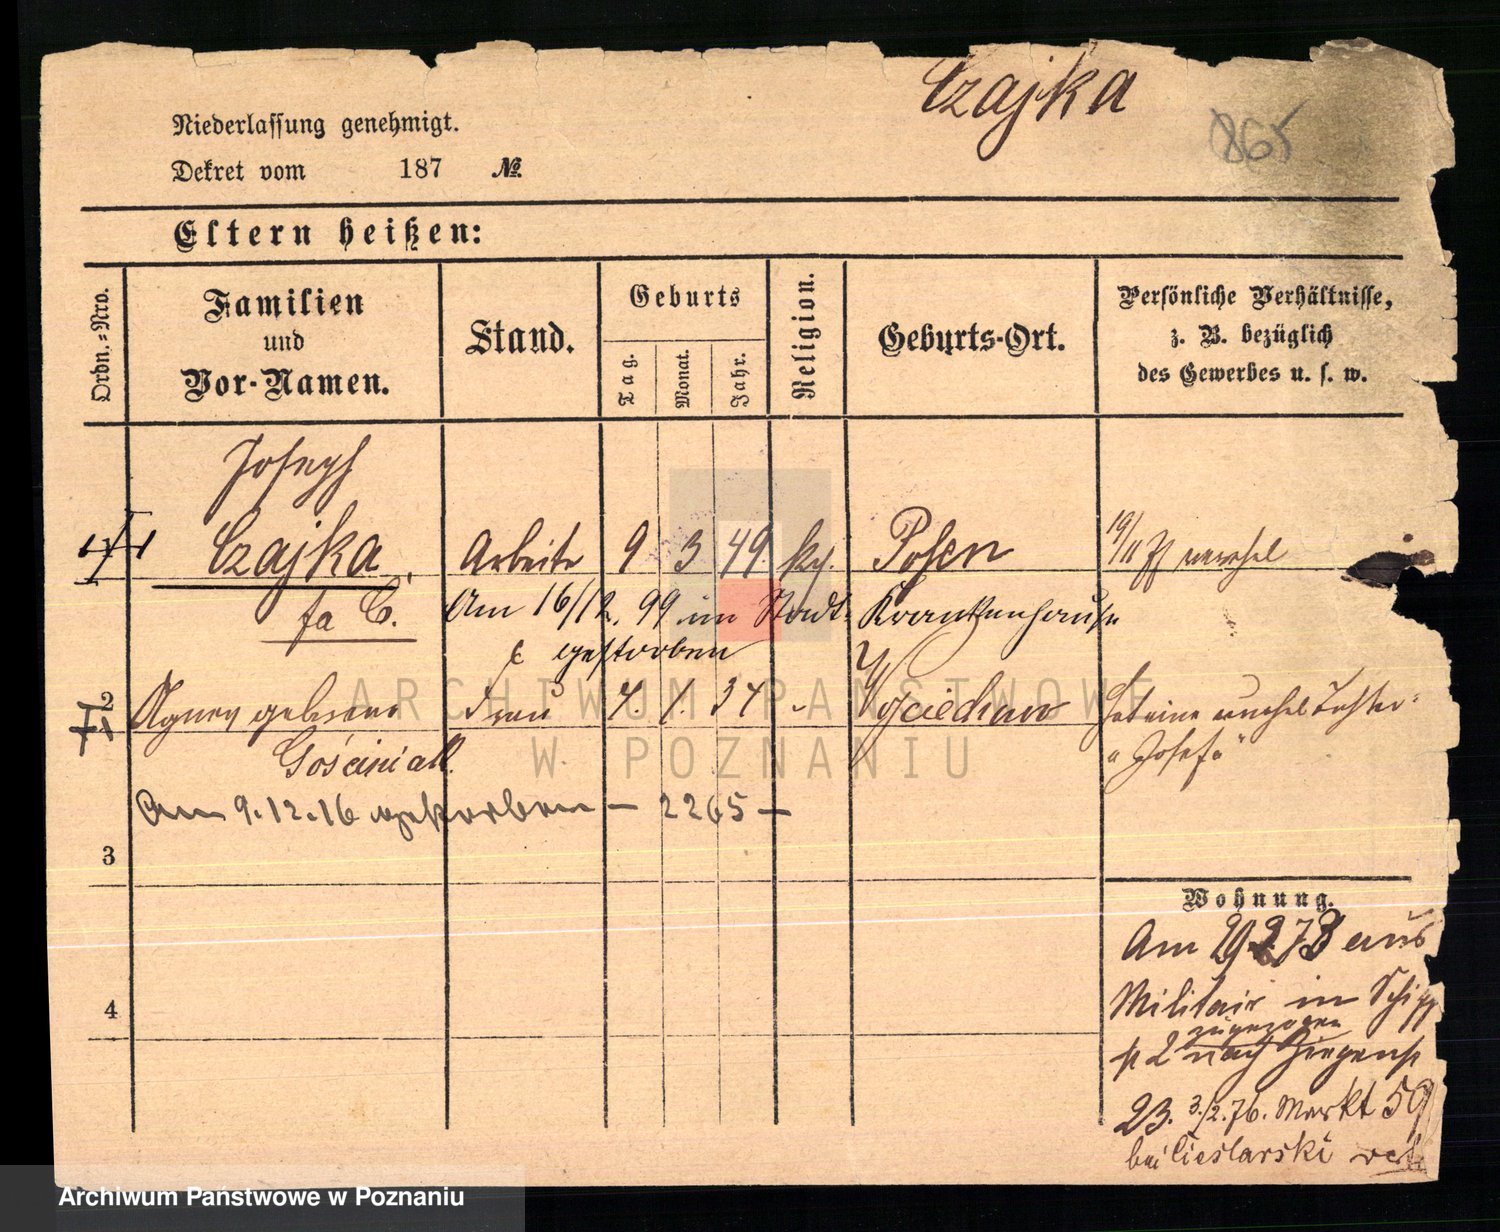 Czajka
865
Niederlassung genehmigt.
Dekret vom 187 №
Eltern heißen:
Ordn.-Nro.
Familien
und
Vor-Namen.
Stand.
Geburts
Tag.
Monat.
Jahr.
Religion.
Geburts-Ort.
Persönliche Verhältnisse,
z. B. bezüglich
des Gewerbes u. s. w.
Joseph
1 Czajka. Arbeiter 9 3 49. Posen 19/11 77
fa C. Am 16/12. 99 im Stadt- Krankenhause
gestorben
2 Agnes geborene Frau 1. 54
Gościniak
"Josefa"
Am 9.12.16 gestorben — 2265 —
3
4
Wohnung.
Am 29.2.73 aus
Militair in
zugezogen
2 nach
23. 3/2.76. Markt 59
bei Cieslarski
ARCHIWUM PAŃSTWOWE
W POZNANIU
Archiwum Państwowe w Poznaniu